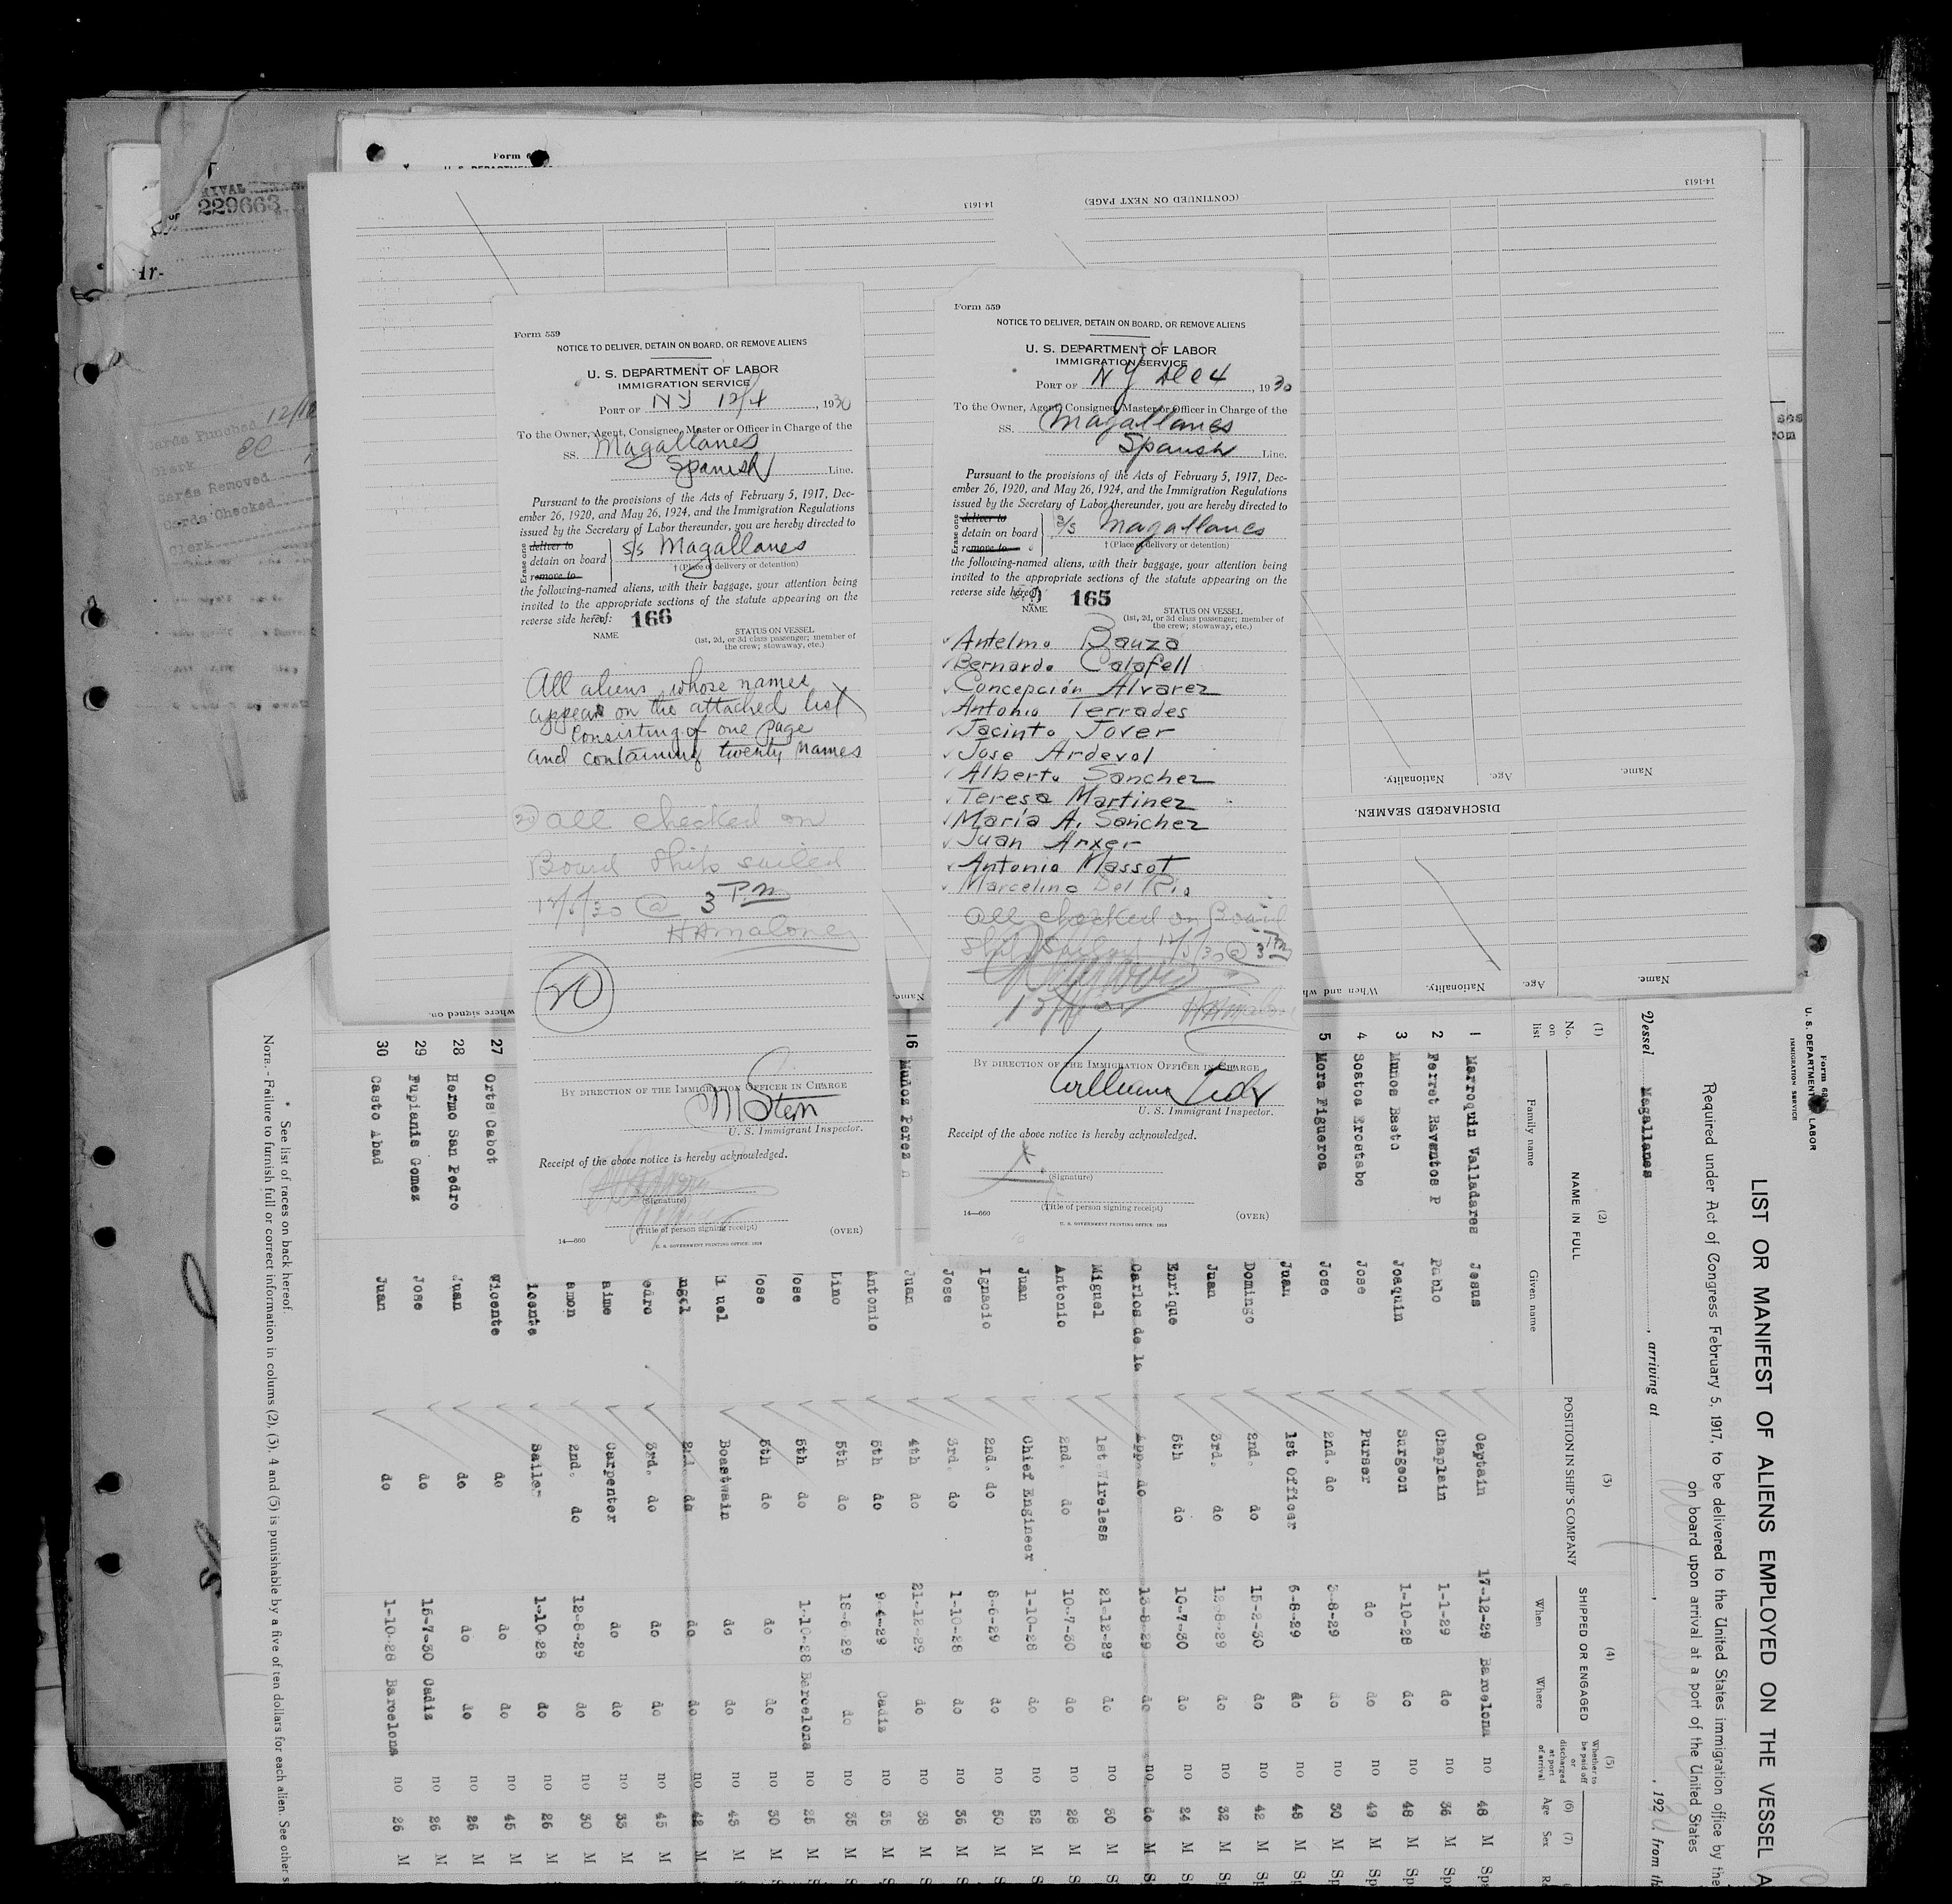 Form 6
229663
Cards Punched 12/18
Clerk
Cards Removed
Cards Checked
Clerk
14-1613
14-1613
(CONTINUED ON NEXT PAGE)
Name.
Age.
Nationality.
DISCHARGED SEAMEN.
Name.
Age.
Nationality.
When and wh
Name.
where signed on.
Form 559
NOTICE TO DELIVER, DETAIN ON BOARD, OR REMOVE ALIENS
U. S. DEPARTMENT OF LABOR
IMMIGRATION SERVICE
PORT OF NY 12/4, 1930
To the Owner, Agent, Consignee, Master or Officer in Charge of the
SS. Magallanes
Spanish Line.
Pursuant to the provisions of the Acts of February 5, 1917, Dec-
ember 26, 1920, and May 26, 1924, and the Immigration Regulations
issued by the Secretary of Labor thereunder, you are hereby directed to
Erase one
deliver to
detain on board S/S Magallanes
remove to
†(Place of delivery or detention)
the following-named aliens, with their baggage, your attention being
invited to the appropriate sections of the statute appearing on the
reverse side hereof: 166
NAME
STATUS ON VESSEL
(1st, 2d, or 3d class passenger; member of
the crew; stowaway, etc.)
All aliens whose names
appear on the attached list
consisting of one page
and containing twenty names
20 all checked on
Board Ship sailed
12/5/30 @ 3 PM
HAMaloney
20
BY DIRECTION OF THE IMMIGRATION OFFICER IN CHARGE
M Stern
U. S. Immigrant Inspector.
Receipt of the above notice is hereby acknowledged.
(Signature)
(Title of person signing receipt)
14—660
U. S. GOVERNMENT PRINTING OFFICE: 1929
(OVER)
Form 559
NOTICE TO DELIVER, DETAIN ON BOARD, OR REMOVE ALIENS
U. S. DEPARTMENT OF LABOR
IMMIGRATION SERVICE
PORT OF NY Dec 4, 1930
To the Owner, Agent, Consignee, Master or Officer in Charge of the
SS. Magallanes
Spanish Line.
Pursuant to the provisions of the Acts of February 5, 1917, Dec-
ember 26, 1920, and May 26, 1924, and the Immigration Regulations
issued by the Secretary of Labor thereunder, you are hereby directed to
Erase one
deliver to
detain on board S/S Magallanes
remove to
†(Place of delivery or detention)
the following-named aliens, with their baggage, your attention being
invited to the appropriate sections of the statute appearing on the
reverse side hereof: 165
NAME
STATUS ON VESSEL
(1st, 2d, or 3d class passenger; member of
the crew; stowaway, etc.)
Antelmo Bauza
Bernardo Calafell
Concepción Alvarez
Antonio Terrades
Jacinto Jover
Jose Ardevol
Alberto Sanchez
Teresa Martinez
Maria A. Sanchez
Juan Arxer
Antonio Massot
Marcelino Del Rio
all checked on Board
Ship Sailed 12/5/30 @ 3 PM
BY DIRECTION OF THE IMMIGRATION OFFICER IN CHARGE
U. S. Immigrant Inspector.
Receipt of the above notice is hereby acknowledged.
X
(Signature)
(Title of person signing receipt)
14—660
U. S. GOVERNMENT PRINTING OFFICE: 1929
(OVER)
Form 68
U. S. DEPARTMENT OF LABOR
IMMIGRATION SERVICE
LIST OR MANIFEST OF ALIENS EMPLOYED ON THE VESSEL A
Required under Act of Congress February 5, 1917, to be delivered to the United States immigration office by the
on board upon arrival at a port of the United States
Vessel Magallanes, arriving at , 192 from th
(1) (2) (3) (4) (5) (6) (7)
No. on list
NAME IN FULL
Family name Given name
POSITION IN SHIP'S COMPANY
SHIPPED OR ENGAGED
When Where
Whether to be paid off or discharged at port of arrival
Age Sex
1 Marroquin Valladares Jesus Captain 17-12-29 Barcelona no 48 M Sp
2 Ferret Raventos P Pablo Chaplain 1-1-29 do no 36 M Sp
3 Muñoz Basto Joaquin Surgeon 1-10-28 do no 48 M Sp
4 Sostoa Erostabe Jose Purser do do no 49 M Sp
5 Mora Figueroa Jose 2nd. do 3-8-29 do no 30 M Sp
Juan 1st Officer 6-8-29 do no 48 M Sp
Domingo 2nd. do 15-2-30 do no 42 M Sp
Juan 3rd. do 12-8-29 do no 32 M Sp
Enrique 5th do 10-7-30 do no 24 M Sp
Carlos de la App. do 13-8-29 do no do M Sp
Miguel 1st Wireless 21-12-29 do no 30 M S
Antonio 2nd. do 10-7-30 do no 28 M S
Juan Chief Engineer 1-10-28 do no 52 M S
Ignacio 2nd. do 8-6-29 do no 50 M S
Jose 3rd. do 1-10-28 do no 36 M S
16 Muñoz Perez Juan 4th do 21-12-29 do no 38 M S
Antonio 5th do 9-4-29 Cadiz no 35 M S
Lino 5th do 18-6-29 do no 35 M S
Jose 5th do 1-10-28 Barcelona no 25 M S
Jose 5th do do do no 30 M S
Boastwain do do no 43 M S
ngel 2nd. do do do no 42 M S
edro 3rd. do do do no 45 M
aime Carpenter do do no 33 M
amon 2nd. do 12-8-29 do no 30 M
icente Sailor 1-10-28 do no 26 M
27 Orts Cabot Vicente do do do no 45 M
28 Hermo San Pedro Juan do do do no 26 M
29 Fupianis Gomez Jose do 15-7-30 Cadiz no 26 M
30 Casto Abad Juan do 1-10-28 Barcelona no 26 M
* See list of races on back hereof.
NOTE.- Failure to furnish full or correct information in colums (2), (3), 4 and (5) is punishable by a five of ten dollars for each alien. See other s